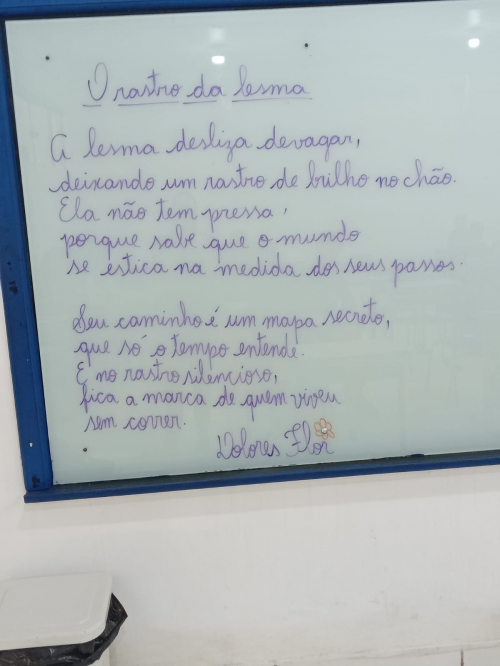 O rastro da lesma
A lesma desliza devagar,
deixando um rastro de brilho no chão.
Ela não tem pressa,
porque sabe que o mundo
se estica na medida dos seus passos.
Seu caminho é um mapa secreto,
que só o tempo entende.
E no rastro silencioso,
fica a marca de quem viveu
sem correr.
Dolores Flor